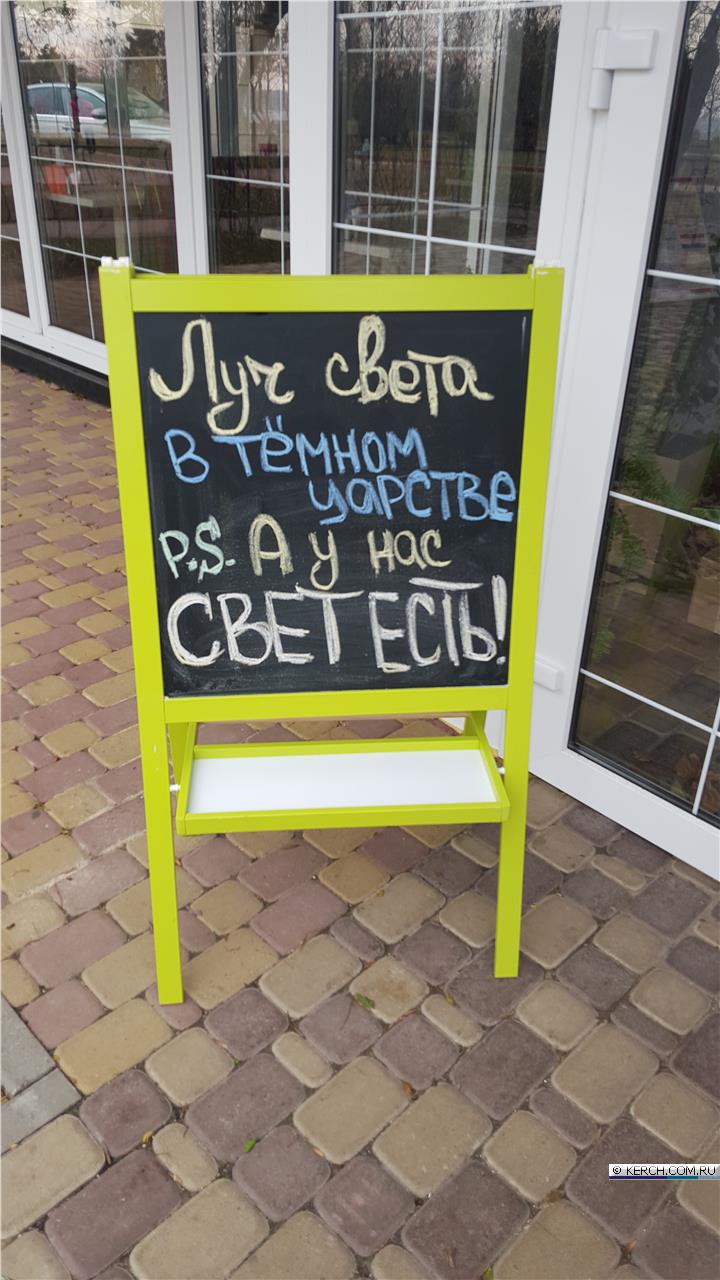 Луч света
в тёмном
царстве
P.S. А у нас
СВЕТ ЕСТЬ!
© KERCH.COM.RU